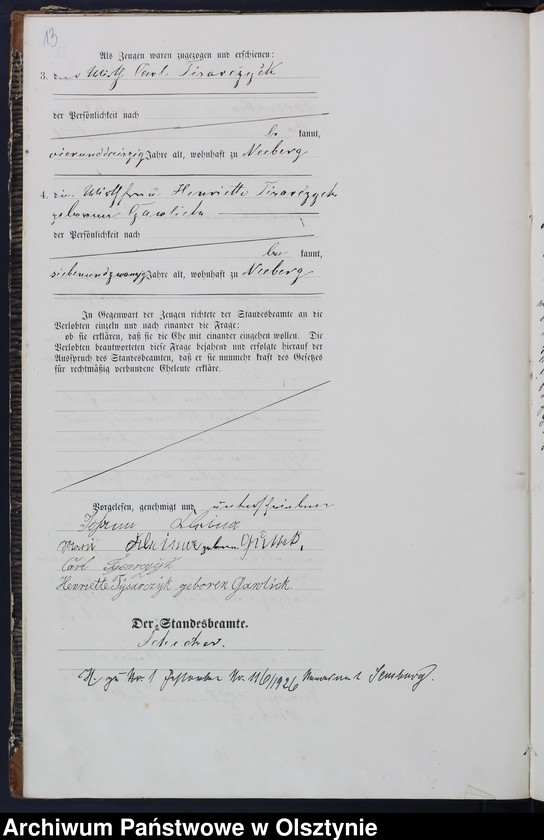 13
Als Zeugen waren zugezogen und erschienen:
3. der Wirth Carl Tisarczyk
der Persönlichkeit nach
be kannt,
vierunddreißig Jahre alt, wohnhaft zu Neeberg
4. die Wirthfrau Henriette Tisarczyk
geborene Gawlick
der Persönlichkeit nach
be kannt,
siebenundzwanzig Jahre alt, wohnhaft zu Neeberg
In Gegenwart der Zeugen richtete der Standesbeamte an die
Verlobten einzeln und nach einander die Frage:
ob sie erklären, daß sie die Ehe mit einander eingehen wollen. Die
Verlobten beantworteten diese Frage bejahend und erfolgte hierauf der
Ausspruch des Standesbeamten, daß er sie nunmehr kraft des Gesetzes
für rechtmäßig verbundene Eheleute erkläre.
Vorgelesen, genehmigt und unterschrieben
Johann
geboren
Carl Tisarczyk
Henriette Tysarczyk geboren Gawlick
Der Standesbeamte.
H. zu Nr. 1 Nr. 116/1926 Sensburg.
Archiwum Państwowe w Olsztynie